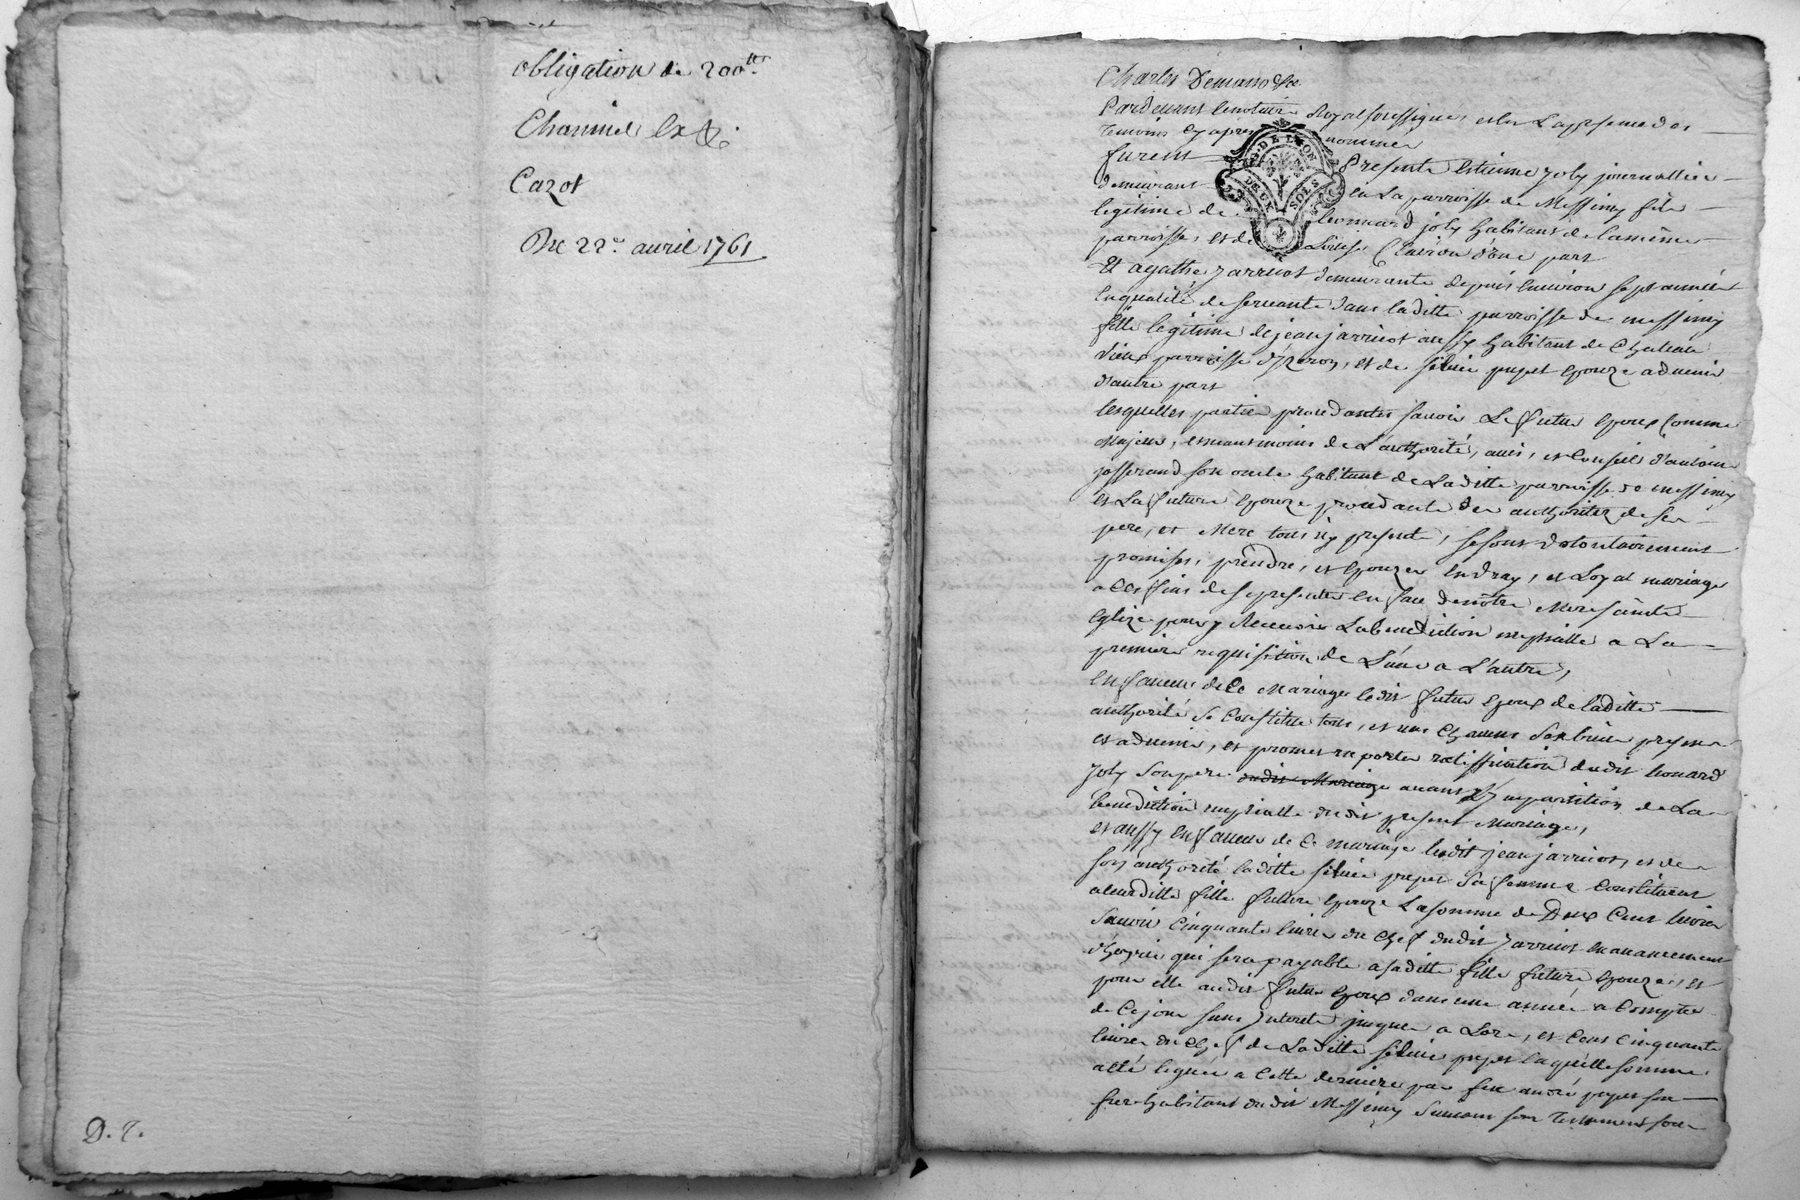 obligation de 200 lt
Channiel
Cazot
Du 22e avril 1761
D. T.
Charles
Pardevant le notaire Royal soussigné, et en la presence des
temoins cy apres nommés
furent Presents Estienne Joly journallier
demeurant en la parroisse de Messimy fils
legitime de Leonnard joly habitant de la même
parroisse, et de Louise Clairon d'une part
Et agathe jarricot demeurante depuis environ sept années
en qualité de servante dans laditte parroisse de messimy
fille legitime de jean jarricot aussy habitant de Chateau
vieux parroisse d'Yzeron, et de silvie pupet epouze a demie
d'autre part
lesquelles parties procedantes savoir Le futur epoux comme
Majeur, et neantmoins de L'authorité, avis, et conseil d'antoine
josserand son oncle habitant de Laditte parroisse de messimy
et La future epouze procedante des authoritez de ses
pere, et Mere tous icy presents, se sont volontairement
promises, prendre, et epouzer en vray, et Loyal mariage
a ces fins de se presenter en face de nôtre Mere sainte
eglize pour y Recevoir La benediction nuptialle a La
premiere requisition de L'une a L'autre,
en faveur de Ce Mariage ledit futur epoux de laditte
authorité se Constitue tous, et uns Chacuns ses biens presens
et advenir, et promet raporter ratiffication dudit Leonard
Joly son pere dudit Mariage avant L'impartition de La
benediction nuptialle dudit present Mariage,
et aussy en faveur de Ce mariage ledit jean jarricot, et de
son authorité laditte silvie pupet sa femme Constituent
a leurditte fille future epouze La somme de Deux Cent livres
savoir Cinquante livres du chef dudit jarricot en avancement
d'hoyrie qui sera payable a saditte fille future epouze, et
pour elle audit futur epoux dans une année a Compter
de Ce jour sans Interets jusques a Lors, et Cent Cinquante
livres du chef de Laditte silvie pupet laquelle somme
a été leguée a Cette derniere par feu andré pupet son
frere habitant dudit Messimy suivant son testament
G. DE LYON
DEUX SOLS